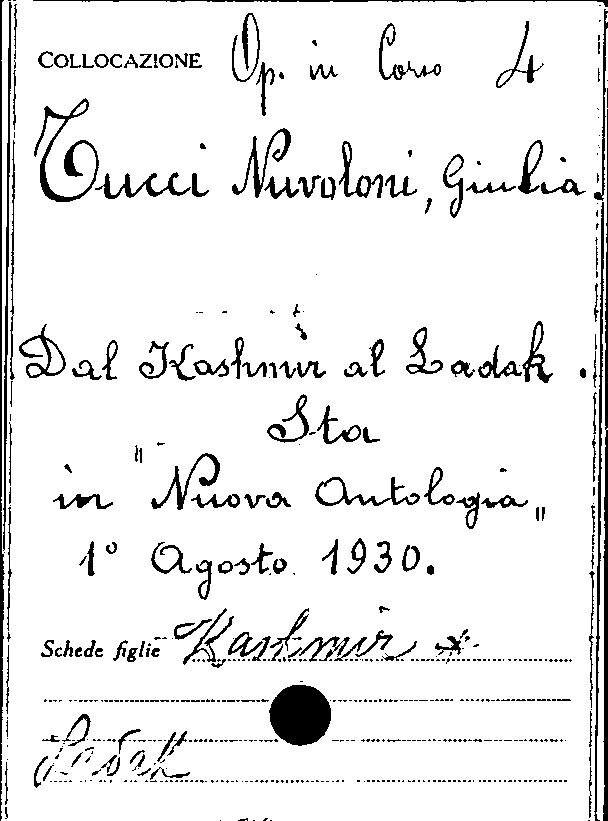 COLLOCAZIONE Op. in Corso 4
Tucci Nuvoloni, Giulia.
Dal Kashmir al Ladak.
Sta
in "Nuova Antologia„
1° Agosto 1930.
Schede figlie Kashmir *
Ladak